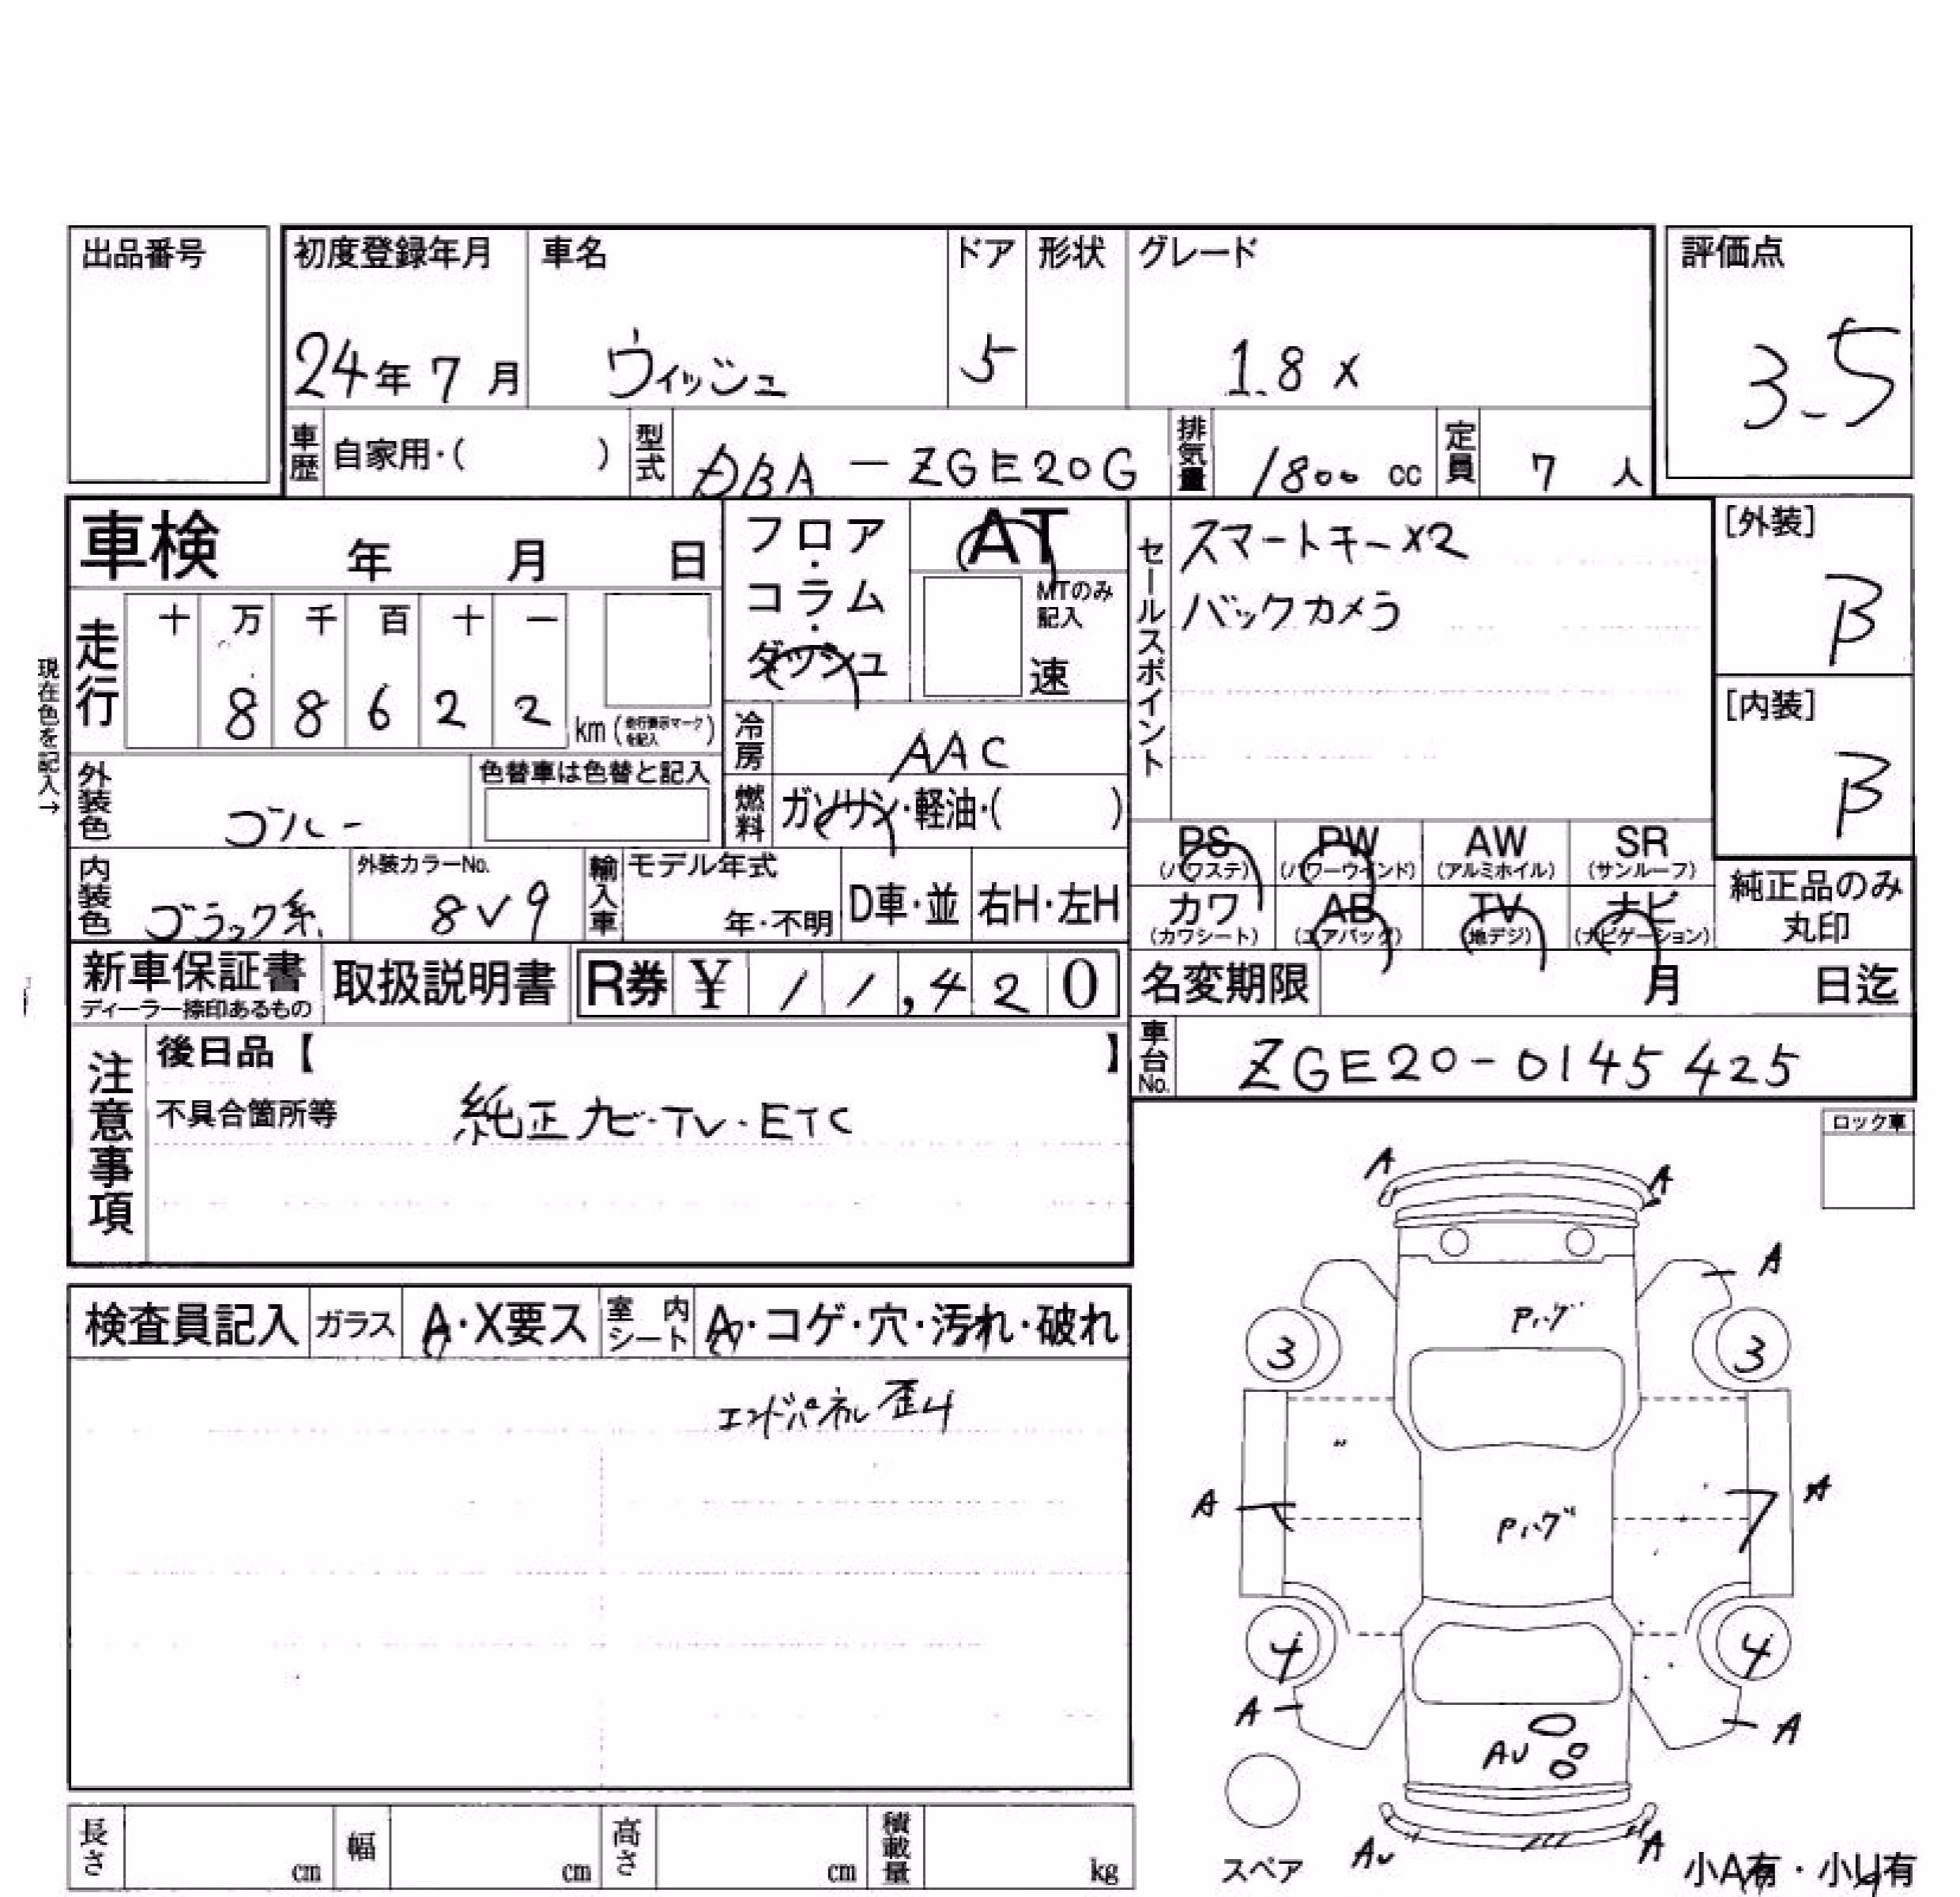 出品番号
初度登録年月 車名 ドア 形状 グレード 評価点
24年 7月 ウィッシュ 5 1.8 X 3.5
車歴 自家用・( ) 型式 DBA-ZGE20G 排気量 1800 cc 定員 7 人
車検 年 月 日
フロア・コラム・ダッシュ
AT
MTのみ記入
速
セールスポイント
スマートキー×2
バックカメラ
[外装]
B
[内装]
B
現在色を記入→
走行 十 万 千 百 十 一
8 8 6 2 2 km (走行表示マークを記入)
冷房 AAC
外装色 色替車は色替と記入
燃料 ガソリン・軽油・( )
内装色 ブラック系
外装カラーNo.
8V9
輸入車 モデル年式
年・不明 D車・並 右H・左H
PS (パワステ) PW (パワーウインド) AW (アルミホイル) SR (サンルーフ)
カワ (カワシート) AB (エアバッグ) TV (地デジ) ナビ (ナビゲーション)
純正品のみ
丸印
新車保証書
ディーラー捺印あるもの
取扱説明書 R券 ¥ 11,420
名変期限 月 日迄
車台No. ZGE20-0145425
注意事項
後日品【 】
不具合箇所等 純正ナビ・TV・ETC
ロック車
検査員記入 ガラス A・X要ス 室内シート A・コゲ・穴・汚れ・破れ
エンドパネル歪み
A A
A
Pハゲ
3 3
A A
Pハゲ
4 4
A A
AU
スペア
AU A
小A有・小U有
長さ cm 幅 cm 高さ cm 積載量 kg